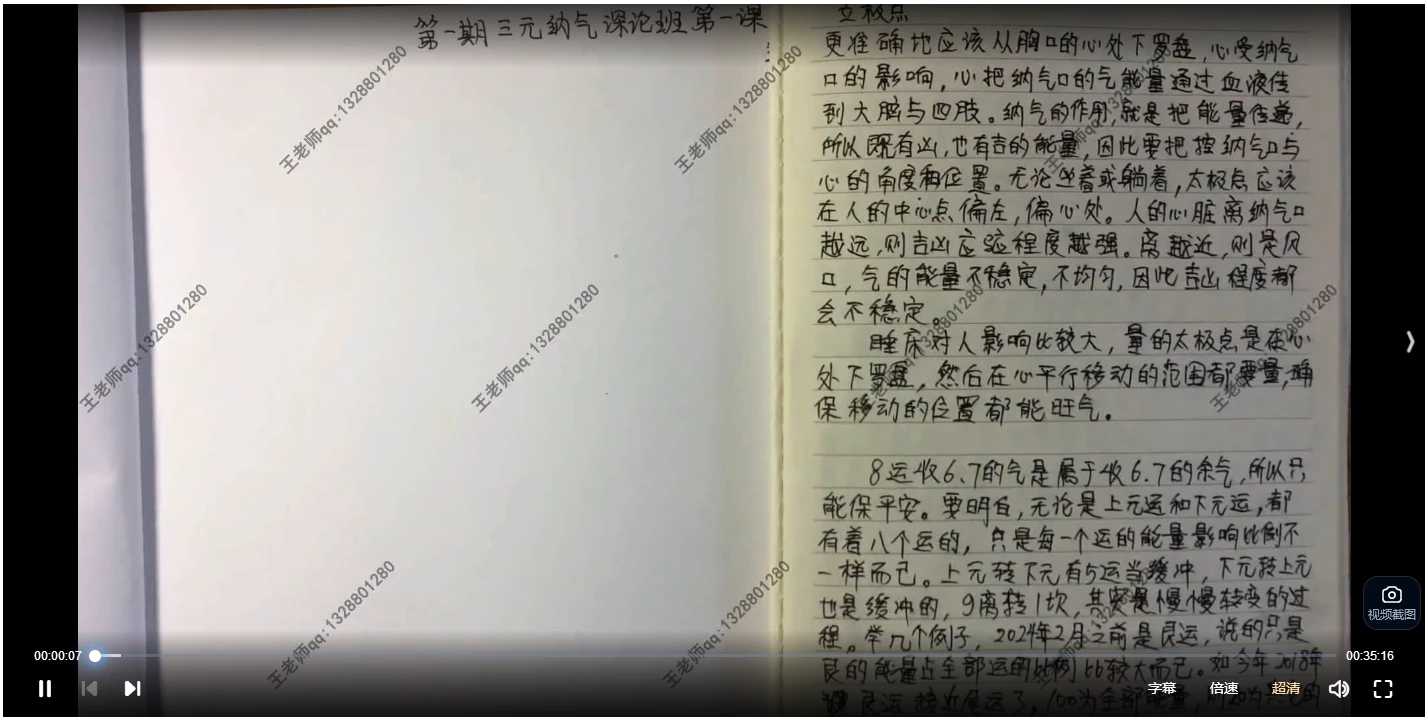 第一期三元纳气深论班第一课
立极点
更准确地应该从胸口的心处下罗盘,心受纳气
口的影响,心把纳气口的气能量通过血液传
到大脑与四肢。纳气的作用,就是把能量传递,
所以既有凶,也有吉的能量,因此要把控纳气口与
心的角度和位置。无论坐着或躺着,太极点应该
在人的中心点偏左,偏心处。人的心脏离纳气口
越远,则吉凶应验程度越强。离越近,则是风
口,气的能量不稳定,不均匀,因此吉凶程度都
会不稳定。
睡床对人影响比较大,量的太极点是在心
处下罗盘,然后在心平行移动的范围都要量,确
保移动的位置都能旺气。
8运收6.7的气是属于收6.7的余气,所以只
能保平安。要明白,无论是上元运和下元运,都
有着八个运的,只是每一个运的能量影响比例不
一样而已。上元转下元有5运当缓冲,下元转上元
也是缓冲的,9离转1坎,其实是慢慢转变的过
程。举几个例子,2024年2月之前是艮运,说的只是
艮的能量占全部运的比例比较大而已。如今年2018年
艮运接近尾运了,100为全部能量,
王老师qq:1328801280
王老师qq:1328801280
王老师qq:1328801280
王老师qq:1328801280
王老师qq:1328801280
王老师qq:1328801280
王老师qq:1328801280
视频截图
00:00:07
00:35:16
字幕
倍速
超清